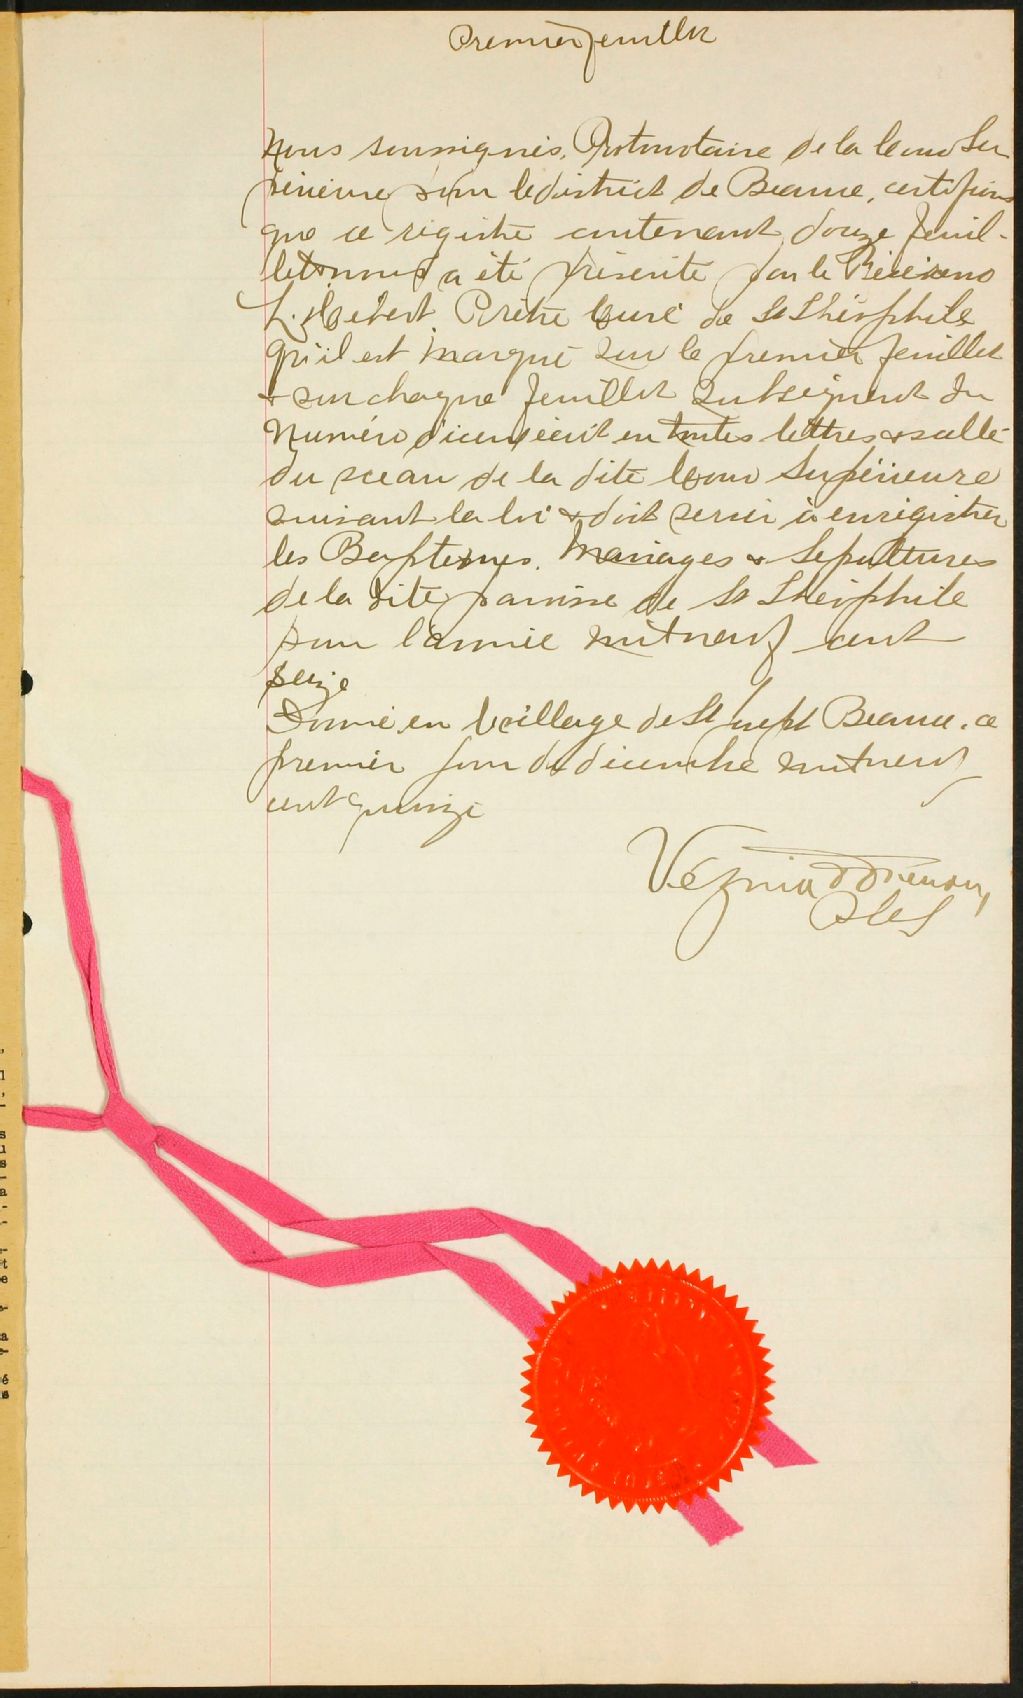 Premier feuillet
Nous soussignés, Protonotaire de la Cour Su
périeure pour le district de Beauce, certifions
que ce registre contenant douze feuil-
lets nous a été présenté par le Révérend
L. Hebert Prêtre Curé de St Théophile
qu'il est marqué sur le premier feuillet
& sur chaque feuillet subséquent du
numéro d'icelui écrit en toutes lettres & scellé
du sceau de la dite Cour Supérieure
suivant la loi & doit servir à enregistrer
les Baptêmes. Mariages & Sépultures
de la dite paroisse de St Théophile
pour l'année mil neuf cent
seize
Donné en Village de St Joseph Beauce. ce
premier jour de décembre mil neuf
cent quinze
Vézina &
P C S